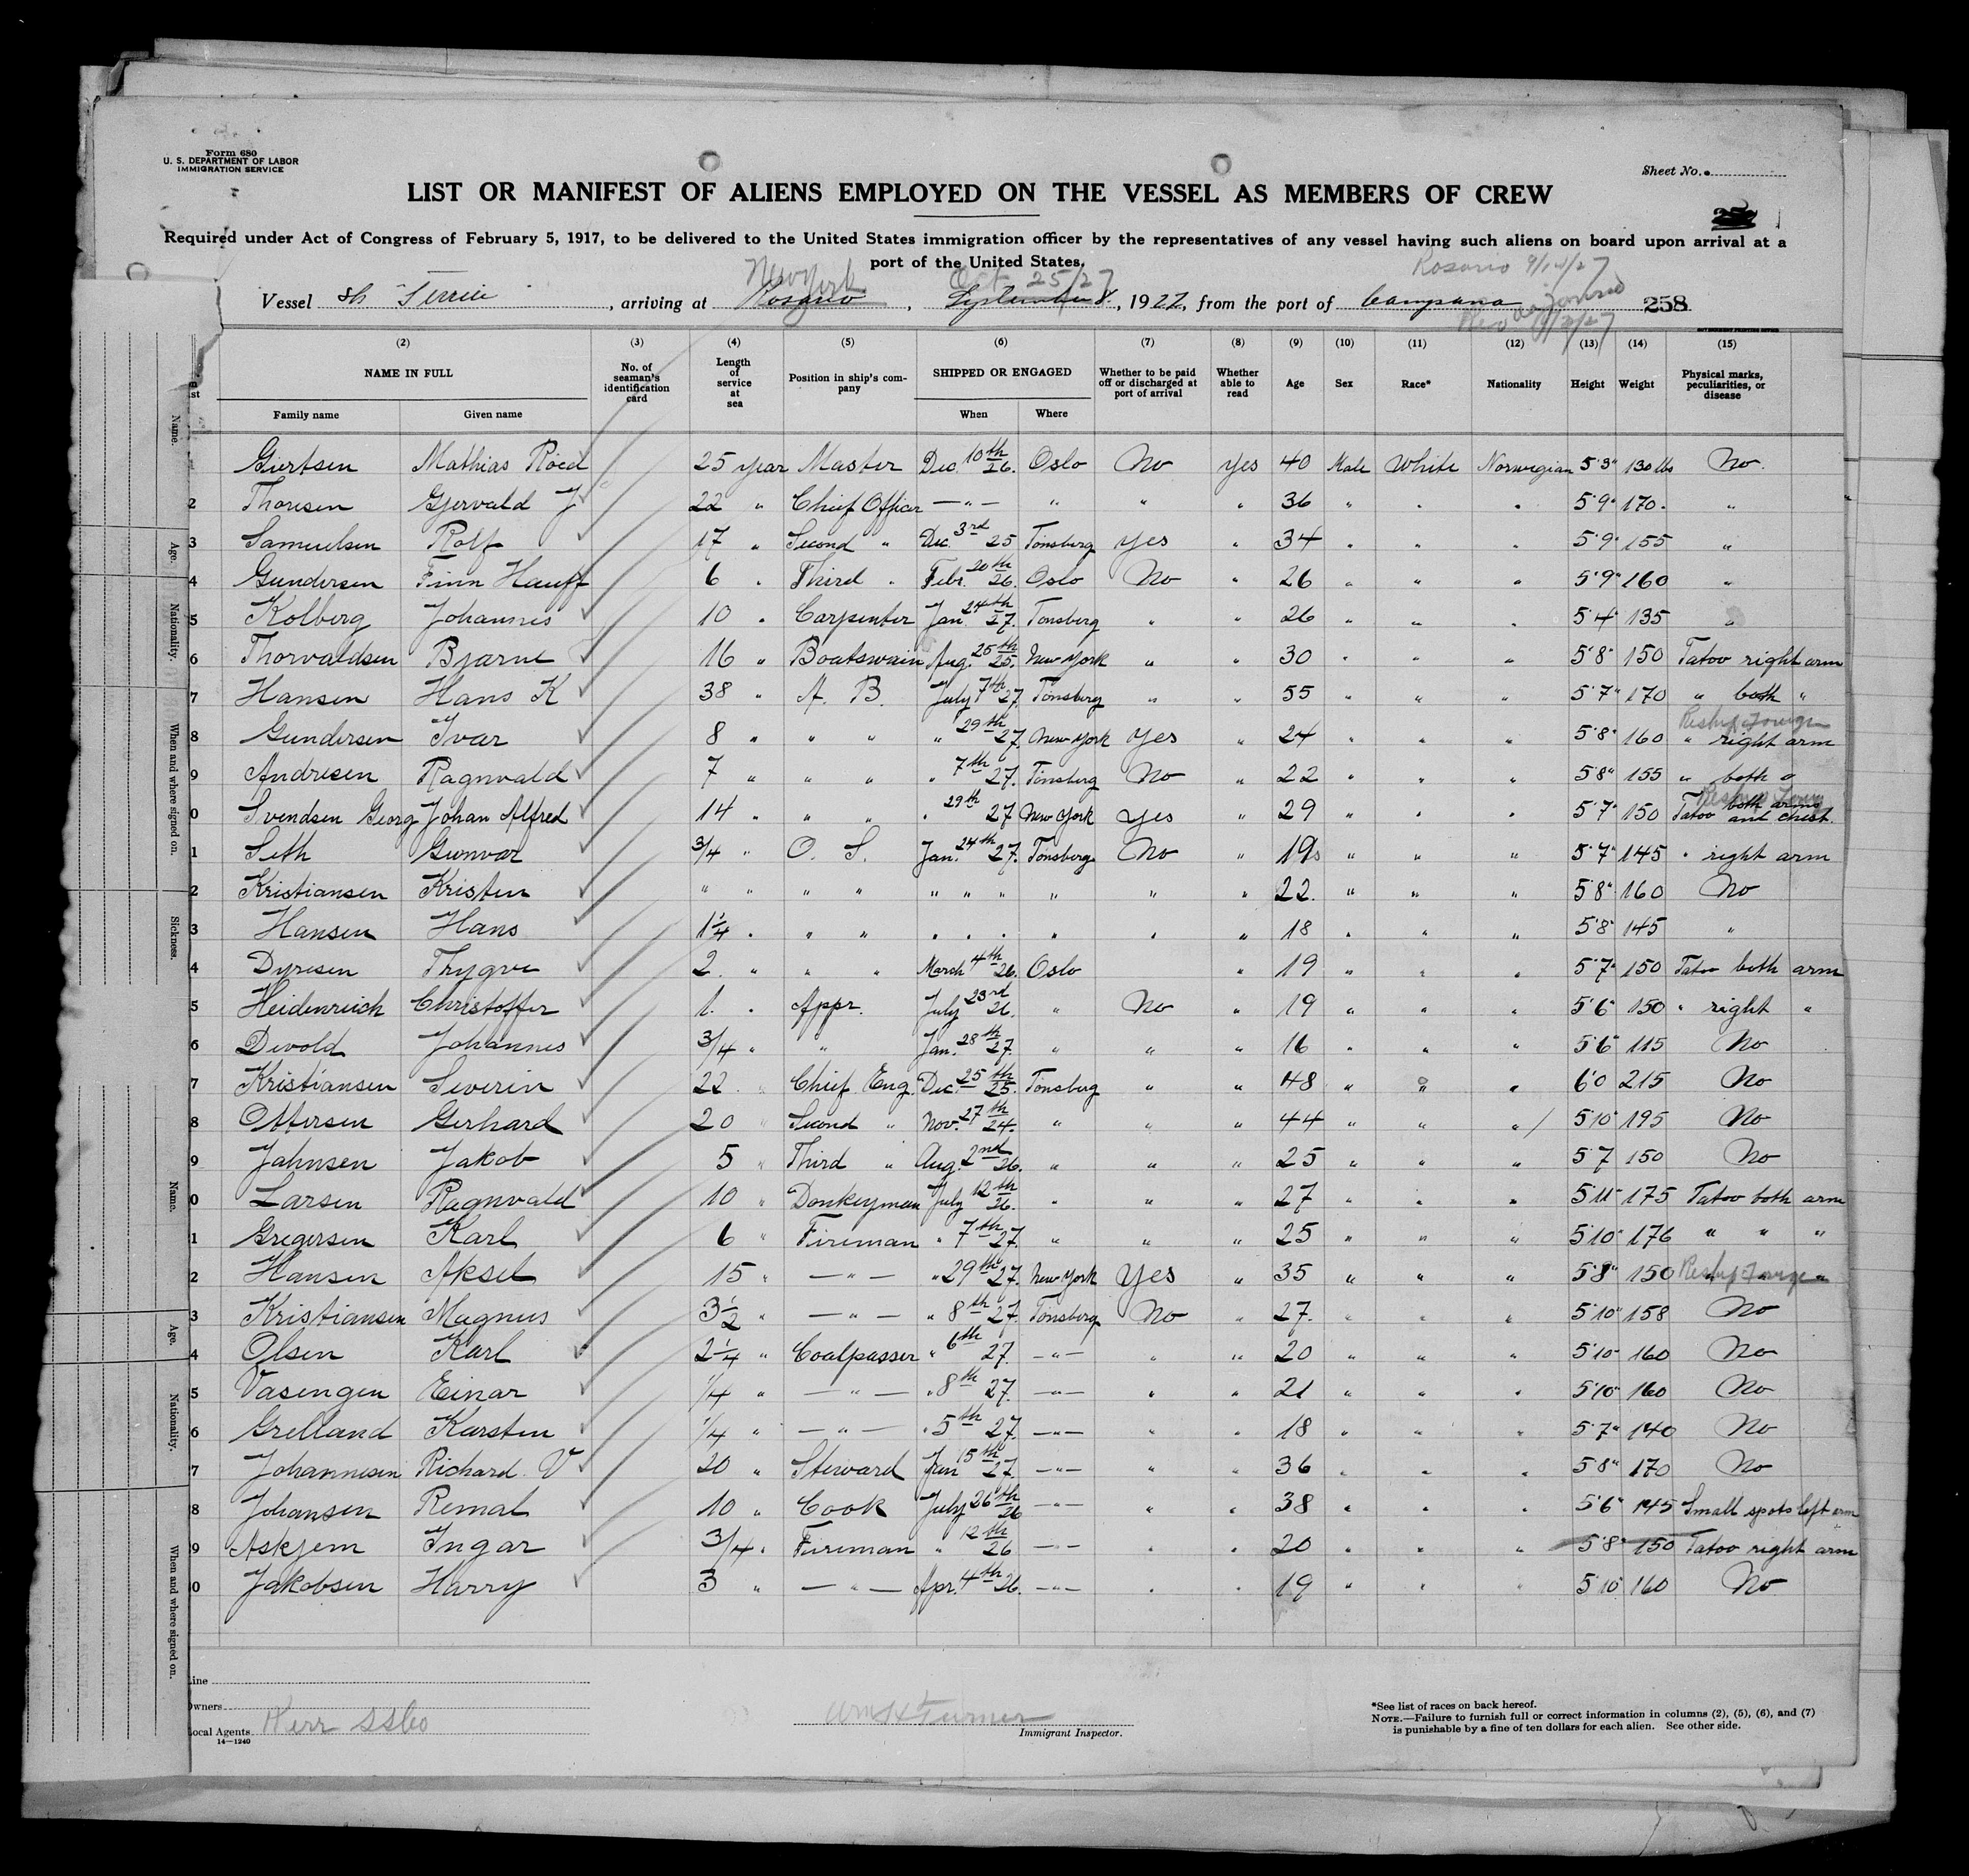 Form 680
U. S. DEPARTMENT OF LABOR
IMMIGRATION SERVICE
Sheet No.
LIST OR MANIFEST OF ALIENS EMPLOYED ON THE VESSEL AS MEMBERS OF CREW
Required under Act of Congress of February 5, 1917, to be delivered to the United States immigration officer by the representatives of any vessel having such aliens on board upon arrival at a
port of the United States.
New York Oct 25/27 Rosario 9/14/27
Vessel , arriving at Rosario, September 8, 1927, from the port of Campana 258
(2) (3) (4) (5) (6) (7) (8) (9) (10) (11) (12) (13) (14) (15)
NAME IN FULL No. of seaman's identification card Length of service at sea Position in ship's company SHIPPED OR ENGAGED Whether to be paid off or discharged at port of arrival Whether able to read Age Sex Race* Nationality Height Weight Physical marks, peculiarities, or disease
Family name Given name When Where
Giertsen Mathias Röed 25 year Master Dec. 10th 26. Oslo No yes 40 Male White Norwegian 5'3" 130 lbs No.
2 Thoresen Gjervald J 22 " Chief Officer —"— " " " 36 " " " 5'9" 170 "
3 Samuelsen Rolf 17 " Second " Dec. 3rd 25 Tönsberg yes " 34 " " " 5'9" 155 "
4 Gundersen Finn Hauff 6 " Third " Febr. 20th 26. Oslo No " 26 " " " 5'9" 160 "
5 Kolberg Johannes 10 " Carpenter Jan. 24th 27. Tonsberg " " 26 " " " 5'4" 135 "
6 Thorvaldsen Bjarne 16 " Boatswain Aug. 25th 25. New York " " 30 " " " 5'8" 150 Tatoo right arm
7 Hansen Hans K 38 " A. B. July 7th 27. Tönsberg " " 55 " " " 5'7" 170 " both "
8 Gundersen Ivar 8 " " " " 29th 27. New York Yes " 24 " " " 5'8" 160 " right arm
9 Andresen Ragnvald 7 " " " " 7th 27. Tönsberg No " 22 " " " 5'8" 155 " both "
0 Svendsen Georg Johan Alfred 14 " " " " 29th 27 New York Yes " 29 " " " 5'7" 150 Tatoo both arms and chest.
1 Seth Gunvar 3/4 " O. S. Jan. 24th 27. Tönsberg No " 19 " " " 5'7" 145 " right arm
2 Kristiansen Kristen " " " " " " " " " " 22. " " " 5'8" 160 No
3 Hansen Hans 1 1/4 " " " " " " " " " 18 " " " 5'8" 145 "
4 Dyresen Trygve 2. " " " March 4th 26. Oslo " 19 " " " 5'7" 150 Tatoo both arm
5 Heidenreich Christoffer 1. " Appr. July 23rd 26. " No " 19 " " " 5'6" 150 " right "
6 Devold Johannes 3/4 " " Jan. 28th 27. " " " 16 " " " 5'6" 115 No
7 Kristiansen Severin 22 " Chief Eng. Dec. 25th 25. Tönsberg " " 48 " " " 6'0 215 No
8 Ottersen Gerhard 20 " Second " Nov. 27th 24. " " " 44 " " " 5'10 195 No
9 Jahnsen Jakob 5 " Third " Aug. 2nd 26. " " " 25 " " " 5'7 150 No
0 Larsen Ragnvald 10 " Donkeyman July 12th 26. " " " 27 " " " 5'11" 175 Tatoo both arm
1 Gregersen Karl 6 " Fireman " 7th 27. " " " 25 " " " 5'10" 176 " " "
2 Hansen Aksel 15 " —"— " 29th 27. New York Yes " 35 " " " 5'8" 150
3 Kristiansen Magnus 3 1/2 " —"— " 8th 27. Tönsberg No " 27. " " " 5'10" 158 No
4 Olsen Karl 2 1/4 " Coalpasser " 6th 27. —"— " " 20 " " " 5'10" 160 No
5 Vasengen Einar 1/4 " —"— " 8th 27. —"— " " 21 " " " 5'10" 160 No
6 Grelland Karsten 1/4 " —"— " 5th 27. —"— " " 18 " " " 5'7" 140 No
7 Johannesen Richard V 20 " Steward Jan 15th 27. —"— " " 36 " " " 5'8" 170 No
8 Johansen Remal 10 " Cook July 26th 26 —"— " " 38 " " " 5'6" 145 Small spots left arm
9 Askjem Ingar 3/4 " Fireman " 12th 26 —"— " " 20 " " " 5'8" 150 Tatoo right arm
0 Jakobsen Harry 3 " —"— Apr. 4th 26. —"— " " 19 " " " 5'10" 160 No
Name.
Age.
Nationality.
When and where signed on.
Sickness.
Name.
Age.
Nationality.
When and where signed on.
Line
Owners
Local Agents Kerr SSCo
14—1240
Wm H Turner
Immigrant Inspector.
*See list of races on back hereof.
NOTE.—Failure to furnish full or correct information in columns (2), (5), (6), and (7)
is punishable by a fine of ten dollars for each alien. See other side.